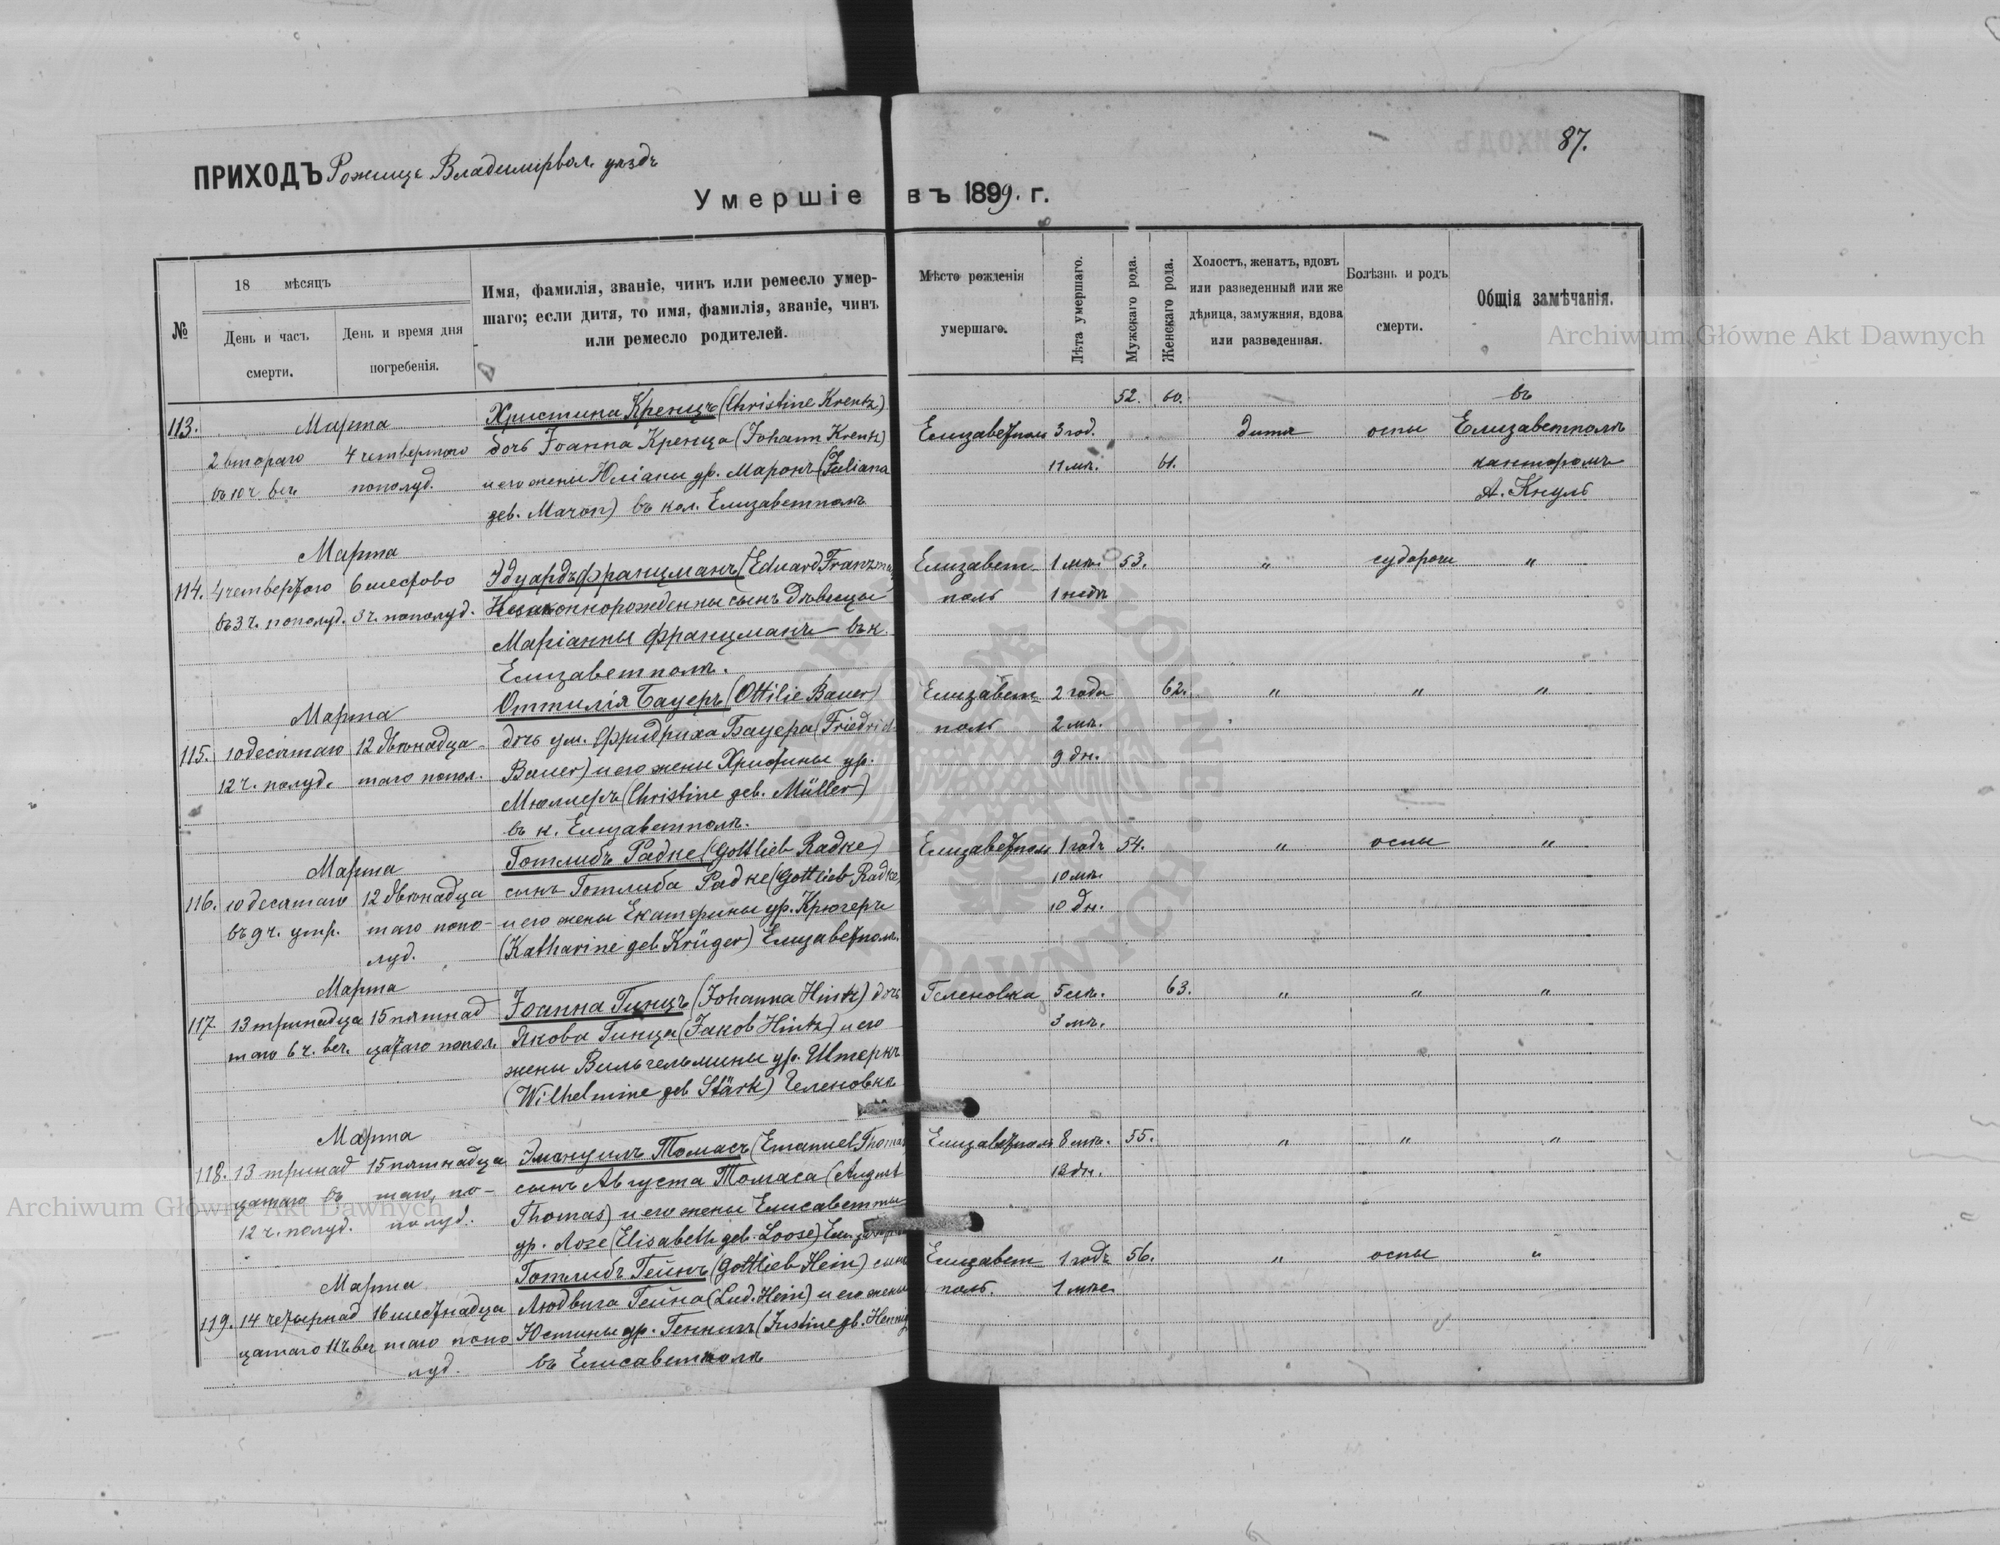 87.
ПРИХОДЪ Рожище Владимірвол. уѣздъ
Умершіе въ 1899. г.
№
18 мѣсяцъ
День и часъ смерти.
День и время дня погребенія.
Имя, фамилія, званіе, чинъ или ремесло умер-
шаго; если дитя, то имя, фамилія, званіе, чинъ
или ремесло родителей.
Мѣсто рожденія
умершаго.
Лѣта умершаго.
Мужскаго рода.
Женскаго рода.
Холостъ, женатъ, вдовъ
или разведенный или же
дѣвица, замужняя, вдова
или разведенная.
Болѣзнь и родъ
смерти.
Общія замѣчанія.
52. 60.
113.
Марта
2 втораго
въ 10 ч. веч.
4 четвертого
пополуд.
Христина Кренцъ (Christine Krentz)
дочь Іоанна Кренца (Johann Krentz)
и его жены Юліаны ур. Маронъ (Juliana
geb. Maron) въ кол. Елизаветполь
Елизаветполь
3 год.
11 мѣ.
61.
дитя
оспы
въ
Елизаветполѣ
канторомъ
А. Кнуль
114.
Марта
4 четвертого
въ 3 ч. пополуд.
6 шестово
3 ч. пополуд.
Эдуардъ Францманъ (Eduard Franzman
Незаконнорожденны сынъ дѣвицы
Маріанны Францманъ въ к.
Елизаветполь.
Елизавет-
поль
1 мѣ.
1 недѣ
53.
"
судороги
"
115.
Марта
10 десятаго
12 ч. полуд.
12 двенадца-
таго попол.
Оттилія Бауеръ (Ottilie Bauer)
дочь ум. Фридриха Бауера (Friedrich
Bauer) и его жены Христины ур.
Мюллеръ (Christine geb. Müller)
въ к. Елизаветполь.
Елизавет-
поль
2 года
2 мѣ.
9 дн.
62.
"
"
"
116.
Марта
10 десятаго
въ 9 ч. утр.
12 двенадца
таго попо-
луд.
Готлибъ Радке (Gottlieb Radke)
сынъ Готлиба Радке (Gottlieb Radke)
и его жены Екатерины ур. Крюгеръ
(Katharine geb. Krüger) Елизаветполь.
Елизаветполь
1 годъ
10 мѣ.
10 дн.
54.
"
оспы
"
117.
Марта
13 тринадца
таго 6 ч. веч.
15 пятнад
цатаго попол.
Іоанна Гинцъ (Johanna Hintz) дочь
Якова Гинца (Jakob Hintz) и его
жены Вильгельмины ур. Штеркъ
(Wilhelmine geb. Stärk) Геленовка
Геленовка
3 мѣ.
63.
"
"
"
118.
Марта
13 тринад
цатаго въ
12 ч. полуд.
15 пятнадца
таго, по-
полуд.
Эмануилъ Томасъ (Emanuel Thomas
сынъ Августа Томаса (August
Thomas) и его жены Елисаветты
ур. Лозе (Elisabeth geb. Loose)
Елизаветполь
8 мѣ.
18 дн.
55.
"
"
"
119.
Марта
14 четырнад
цатаго 11 ч. веч
16 шестнадца
таго попо
луд.
Готлибъ Гейнъ (Gottlieb Hein) сынъ
Людвига Гейна (Lud. Hein) и его жены
Юстины ур. Геннигъ (Justine gb. Hennig
въ Елисаветполь
Елизавет
поль.
1 годъ
1 мѣс.
56.
"
оспы
"
Archiwum Główne Akt Dawnych
Archiwum Główne Akt Dawnych